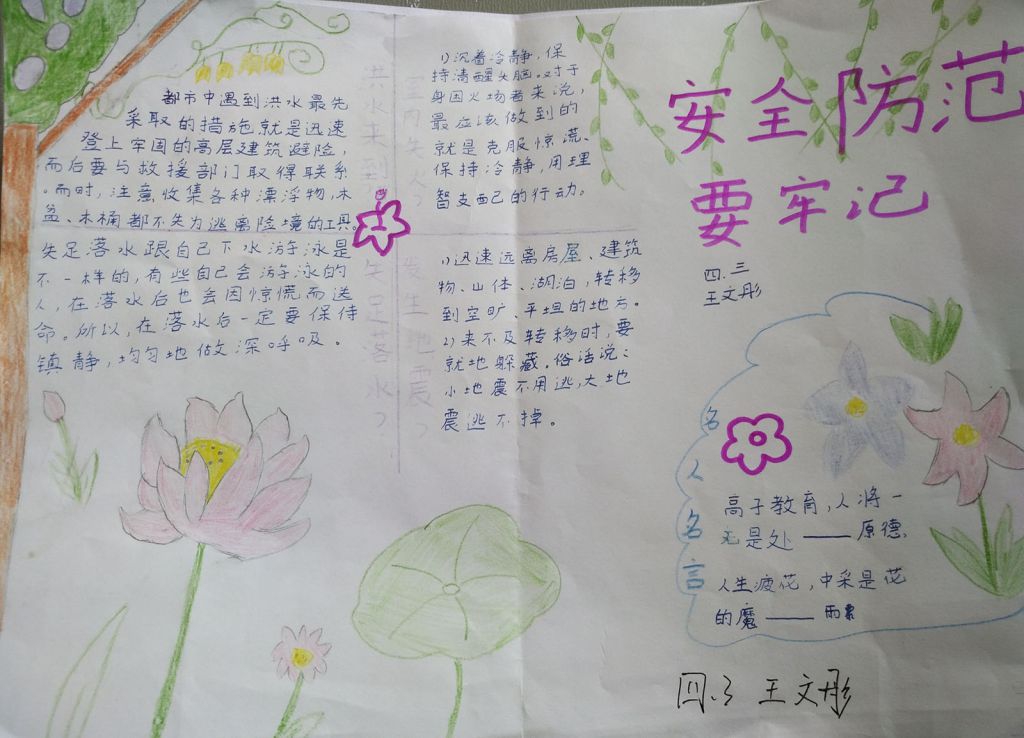 安全防范
要牢记
四.三
王文彤
洪水来到
都市中遇到洪水最先
采取的措施就是迅速
登上牢固的高层建筑避险,
而后要与救援部门取得联系
。而时,注意收集各种漂浮物,木
盆、木桶都不失为逃离险境的工具。
失足落水?
失足落水跟自己下水游泳是
不一样的,有些自己会游泳的
人,在落水后也会因惊慌而送
命。所以,在落水后一定要保侍
镇静,均匀地做深呼吸。
室内失火?
1)沉着冷静,保
持清醒头脑。对于
身困火场者来说,
最应该做到的
就是克服惊慌、
保持冷静,用理
智支配己的行动。
发生地震?
1)迅速远离房屋、建筑
物、山体、湖泊,转移
到空旷、平坦的地方。
2)来不及转移时,要
就地躲藏。俗话说:
小地震不用逃,大地
震逃不掉。
名人名言
高子教育,人将一
无是处——原德
人生疲花,中采是花
的魔——雨果
四.3 王文彤